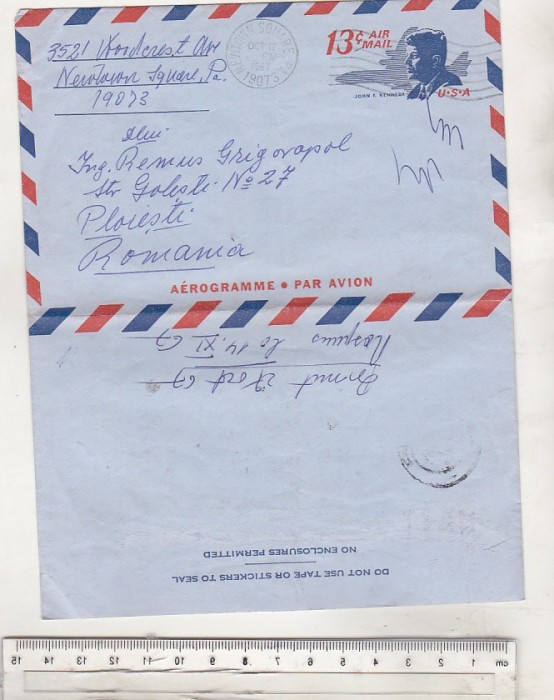 3521 Woodcrest Ave
Newtown Square, Pa.
19073
NEWTOWN SQUARE PA
OCT
1967
19073
13¢ AIR
MAIL
JOHN F. KENNEDY
U·S·A
Dlui
Ing. Remus Grigorapol
Str Golești No 27
Ploiești
Romania
AÉROGRAMME • PAR AVION
Primit
Răspuns la 14.XI 67
NO ENCLOSURES PERMITTED
DO NOT USE TAPE OR STICKERS TO SEAL
15 14 13 12 11 10 9 8 7 6 5 4 3 2 1 cm